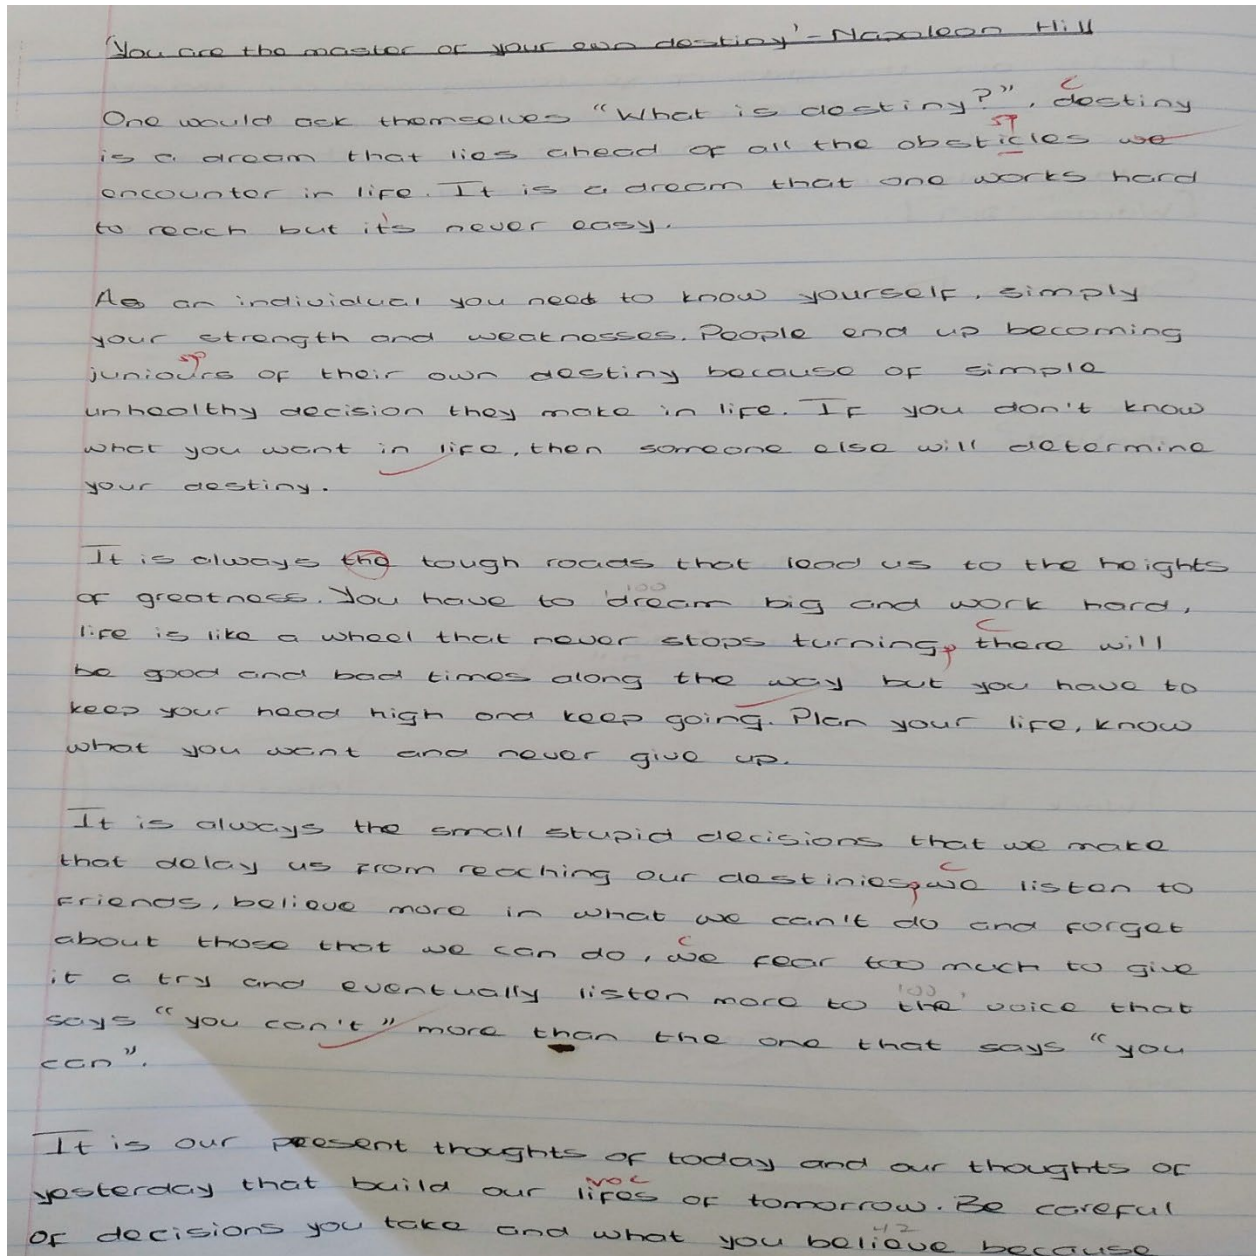 'You are the master of your own destiny' - Napoleon Hill
One would ask themselves "What is destiny?", destiny
c
sp
is a dream that lies ahead of all the obsticles we
encounter in life. It is a dream that one works hard
to reach but it's never easy.
As an individual you need to know yourself, simply
your strength and weaknesses. People end up becoming
sp
juniours of their own destiny because of simple
unhealthy decision they make in life. If you don't know
what you want in life, then someone else will determine
your destiny.
It is always the tough roads that lead us to the heights
of greatness. You have to dream big and work hard,
100
c
life is like a wheel that never stops turning, there will
be good and bad times along the way but you have to
keep your head high and keep going. Plan your life, know
what you want and never give up.
It is always the small stupid decisions that we make
c
that delay us from reaching our destinies, we listen to
friends, believe more in what we can't do and forget
c
about those that we can do, we fear too much to give
it a try and eventually listen more to the voice that
100
says "you can't" more than the one that says "you
can".
It is our present thoughts of today and our thoughts of
voc
yesterday that build our lifes of tomorrow. Be careful
42
of decisions you take and what you believe because